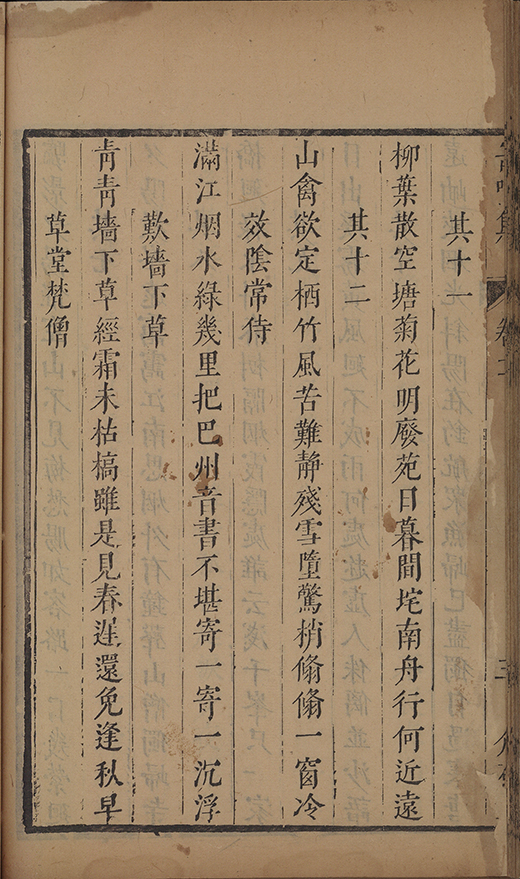 其十一
柳葉散空塘菊花明廢苑日暮間垞南舟行何近遠
其十二
山禽欲定栖竹風苦難靜殘雪墮驚梢翛翛一窗冷
效陰常侍
滿江烟水綠幾里把巴州音書不堪寄一寄一沉浮
歎墻下草
靑靑墻下草經霜未枯槁雖是見春遲還免逢秋早
草堂梵僧